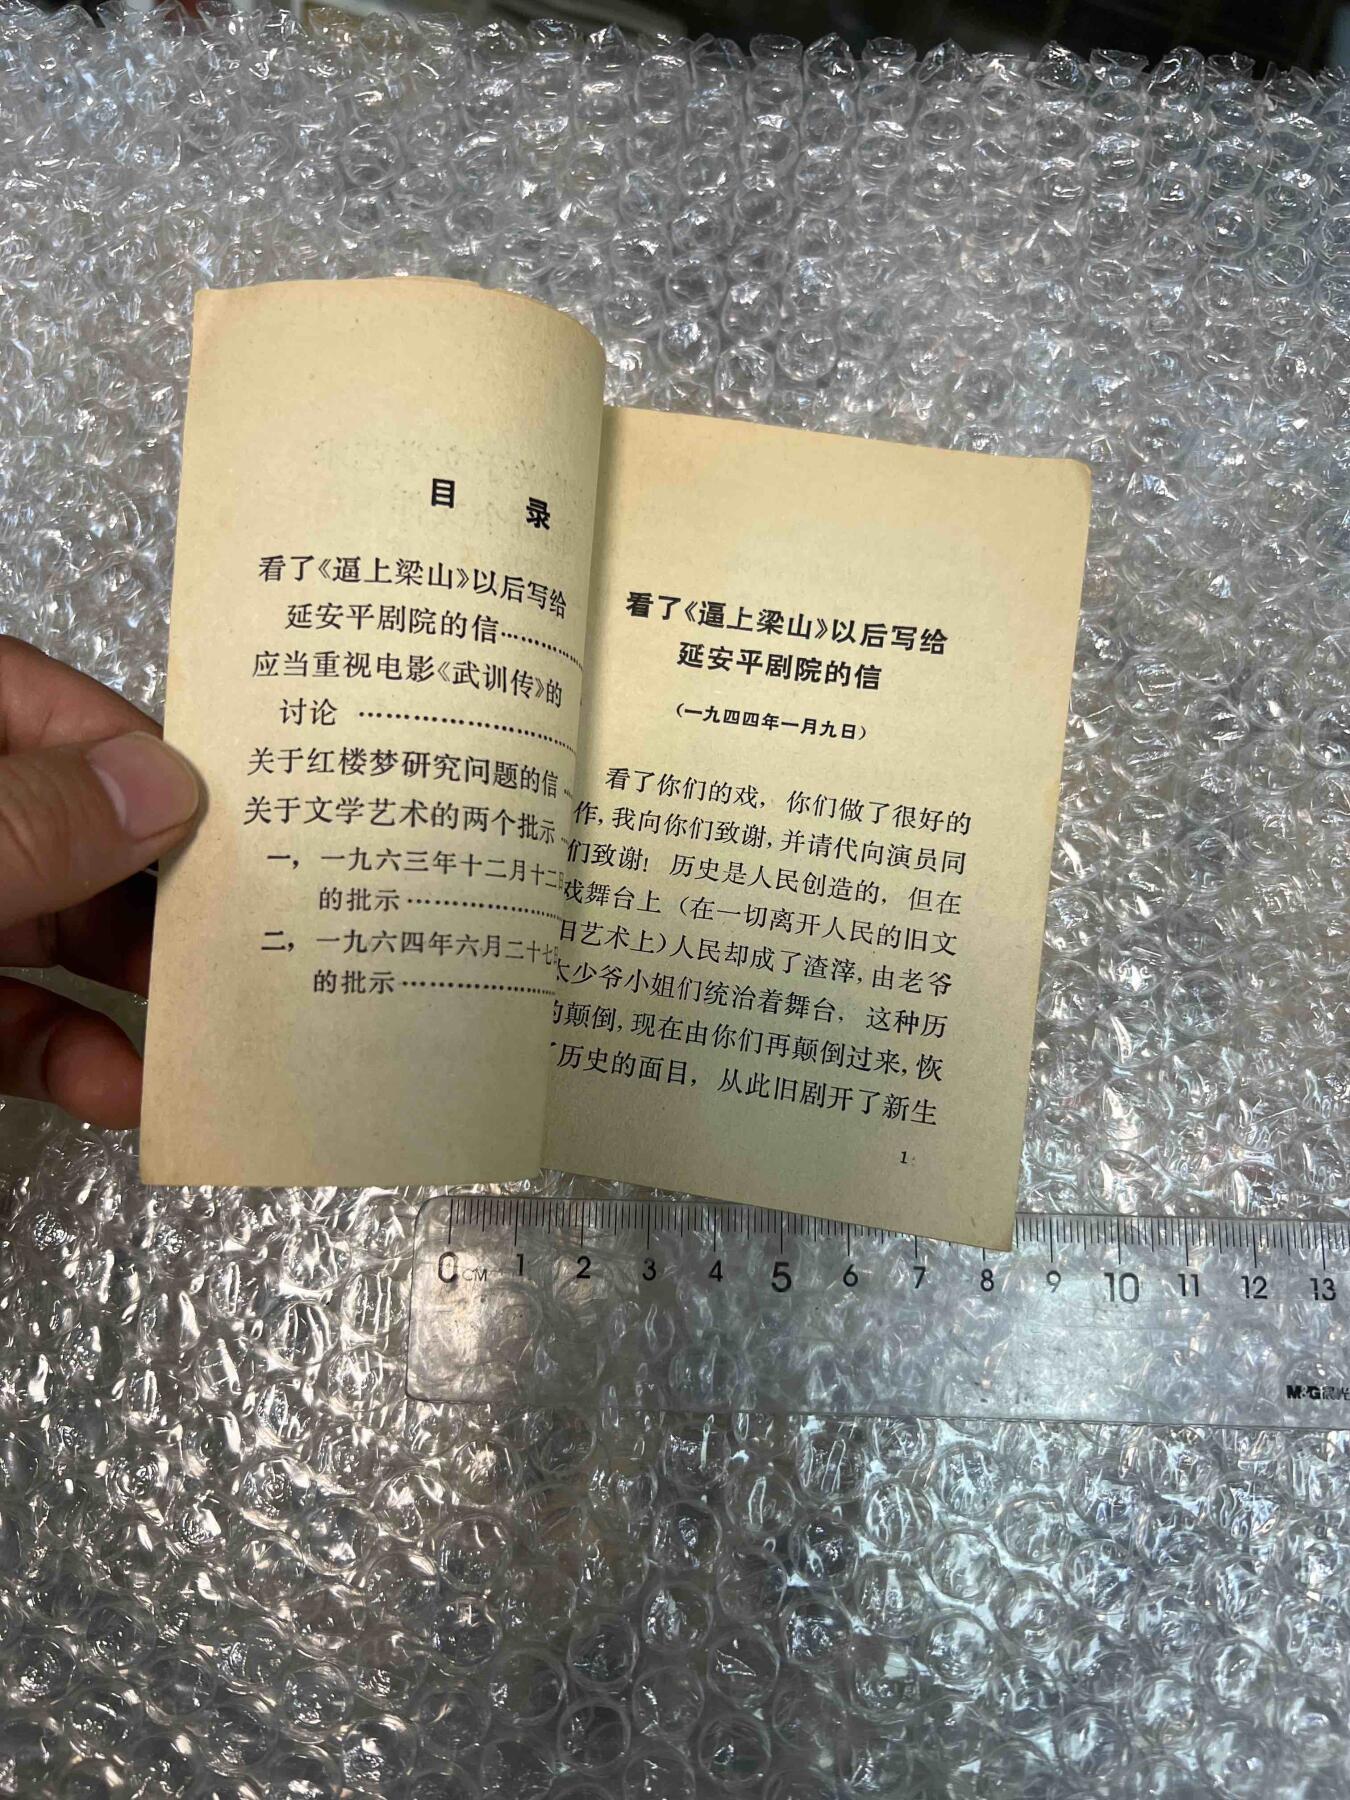 目 录
看了《逼上梁山》以后写给
延安平剧院的信…………
应当重视电影《武训传》的
讨论 ……………………
关于红楼梦研究问题的信 …
关于文学艺术的两个批示 …
一，一九六三年十二月十二日
的批示 …………………
二，一九六四年六月二十七日
的批示 …………………
看了《逼上梁山》以后写给
延安平剧院的信
（一九四四年一月九日）
看了你们的戏，你们做了很好的
作，我向你们致谢，并请代向演员同
们致谢！历史是人民创造的，但在
戏舞台上（在一切离开人民的旧文
日艺术上）人民却成了渣滓，由老爷
太少爷小姐们统治着舞台，这种历
的颠倒，现在由你们再颠倒过来，恢
了历史的面目，从此旧剧开了新生
1
0 CM 1 2 3 4 5 6 7 8 9 10 11 12 13
M&G 晨光